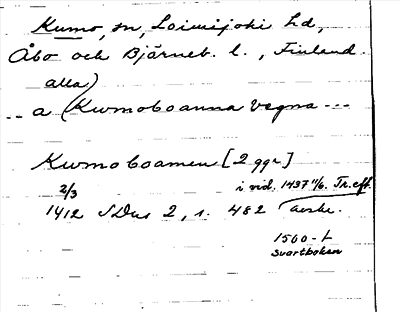 Kumo, sn, Loimijoki hd,
Åbo och Björneb. l., Finland.
alla)
-- a (Kumoboanna vegna ---
Kumoboamen [2 ggr]
2/3 i vid. 1437 11/6. Tr. eft.
1412 SDns 2, s. 482 avskr.
1500-t
Svartboken